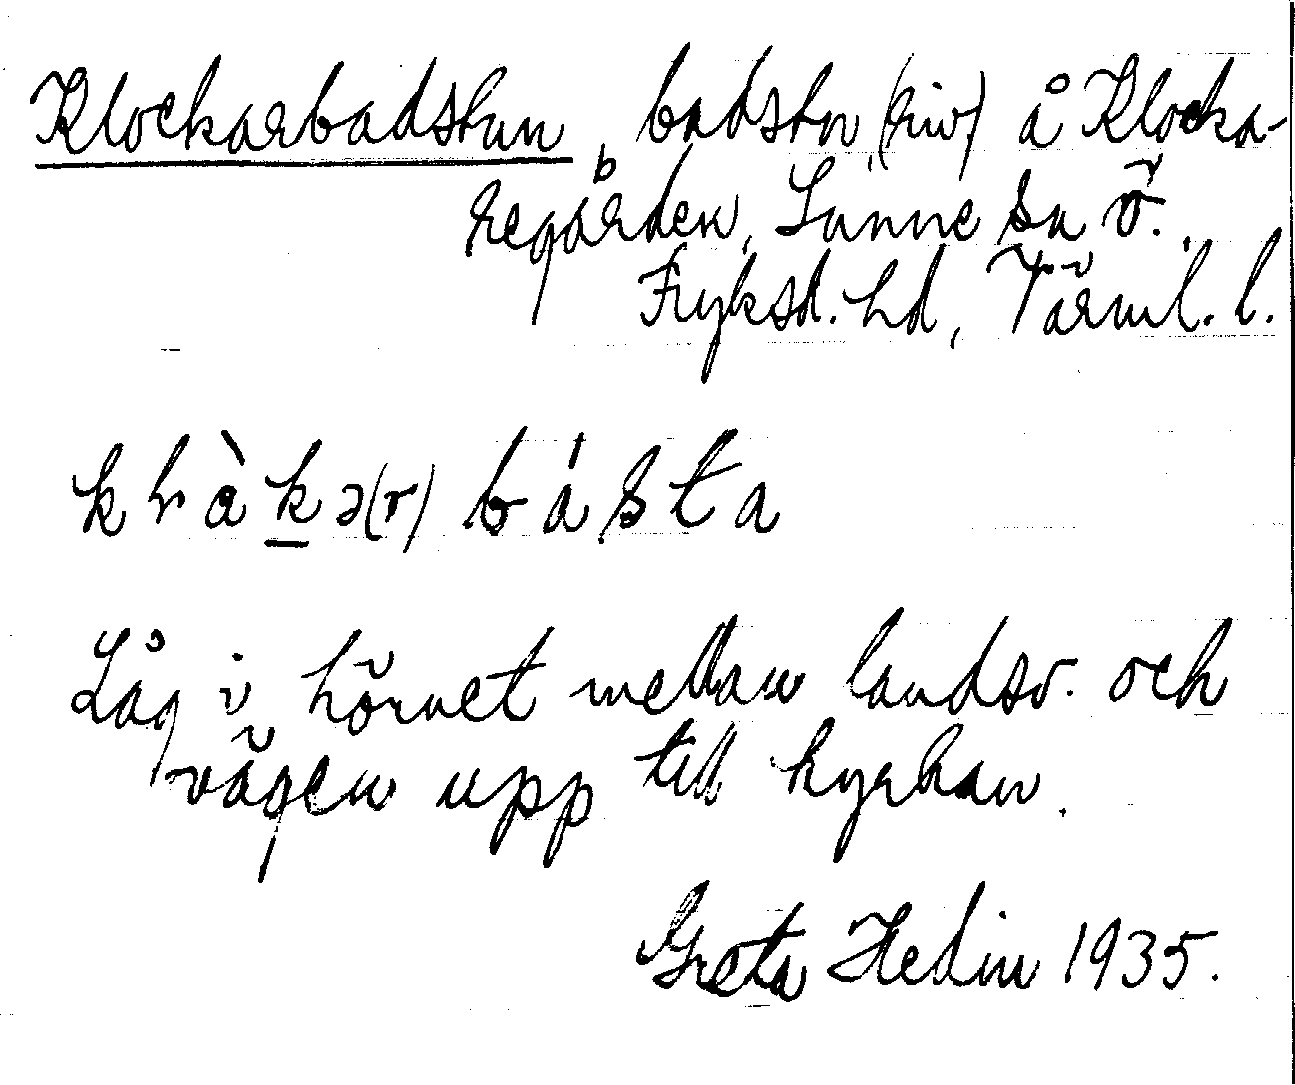 Klockarbadstun, badstu (riv.) å Klocka-
regården, Sunne sn ö.
Fryksd. hd, Värml. l.
k ḷ à k ə(r) b á s t a
Låg i hörnet mellan landsv. och
vägen upp till kyrkan.
Greta Hedin 1935.